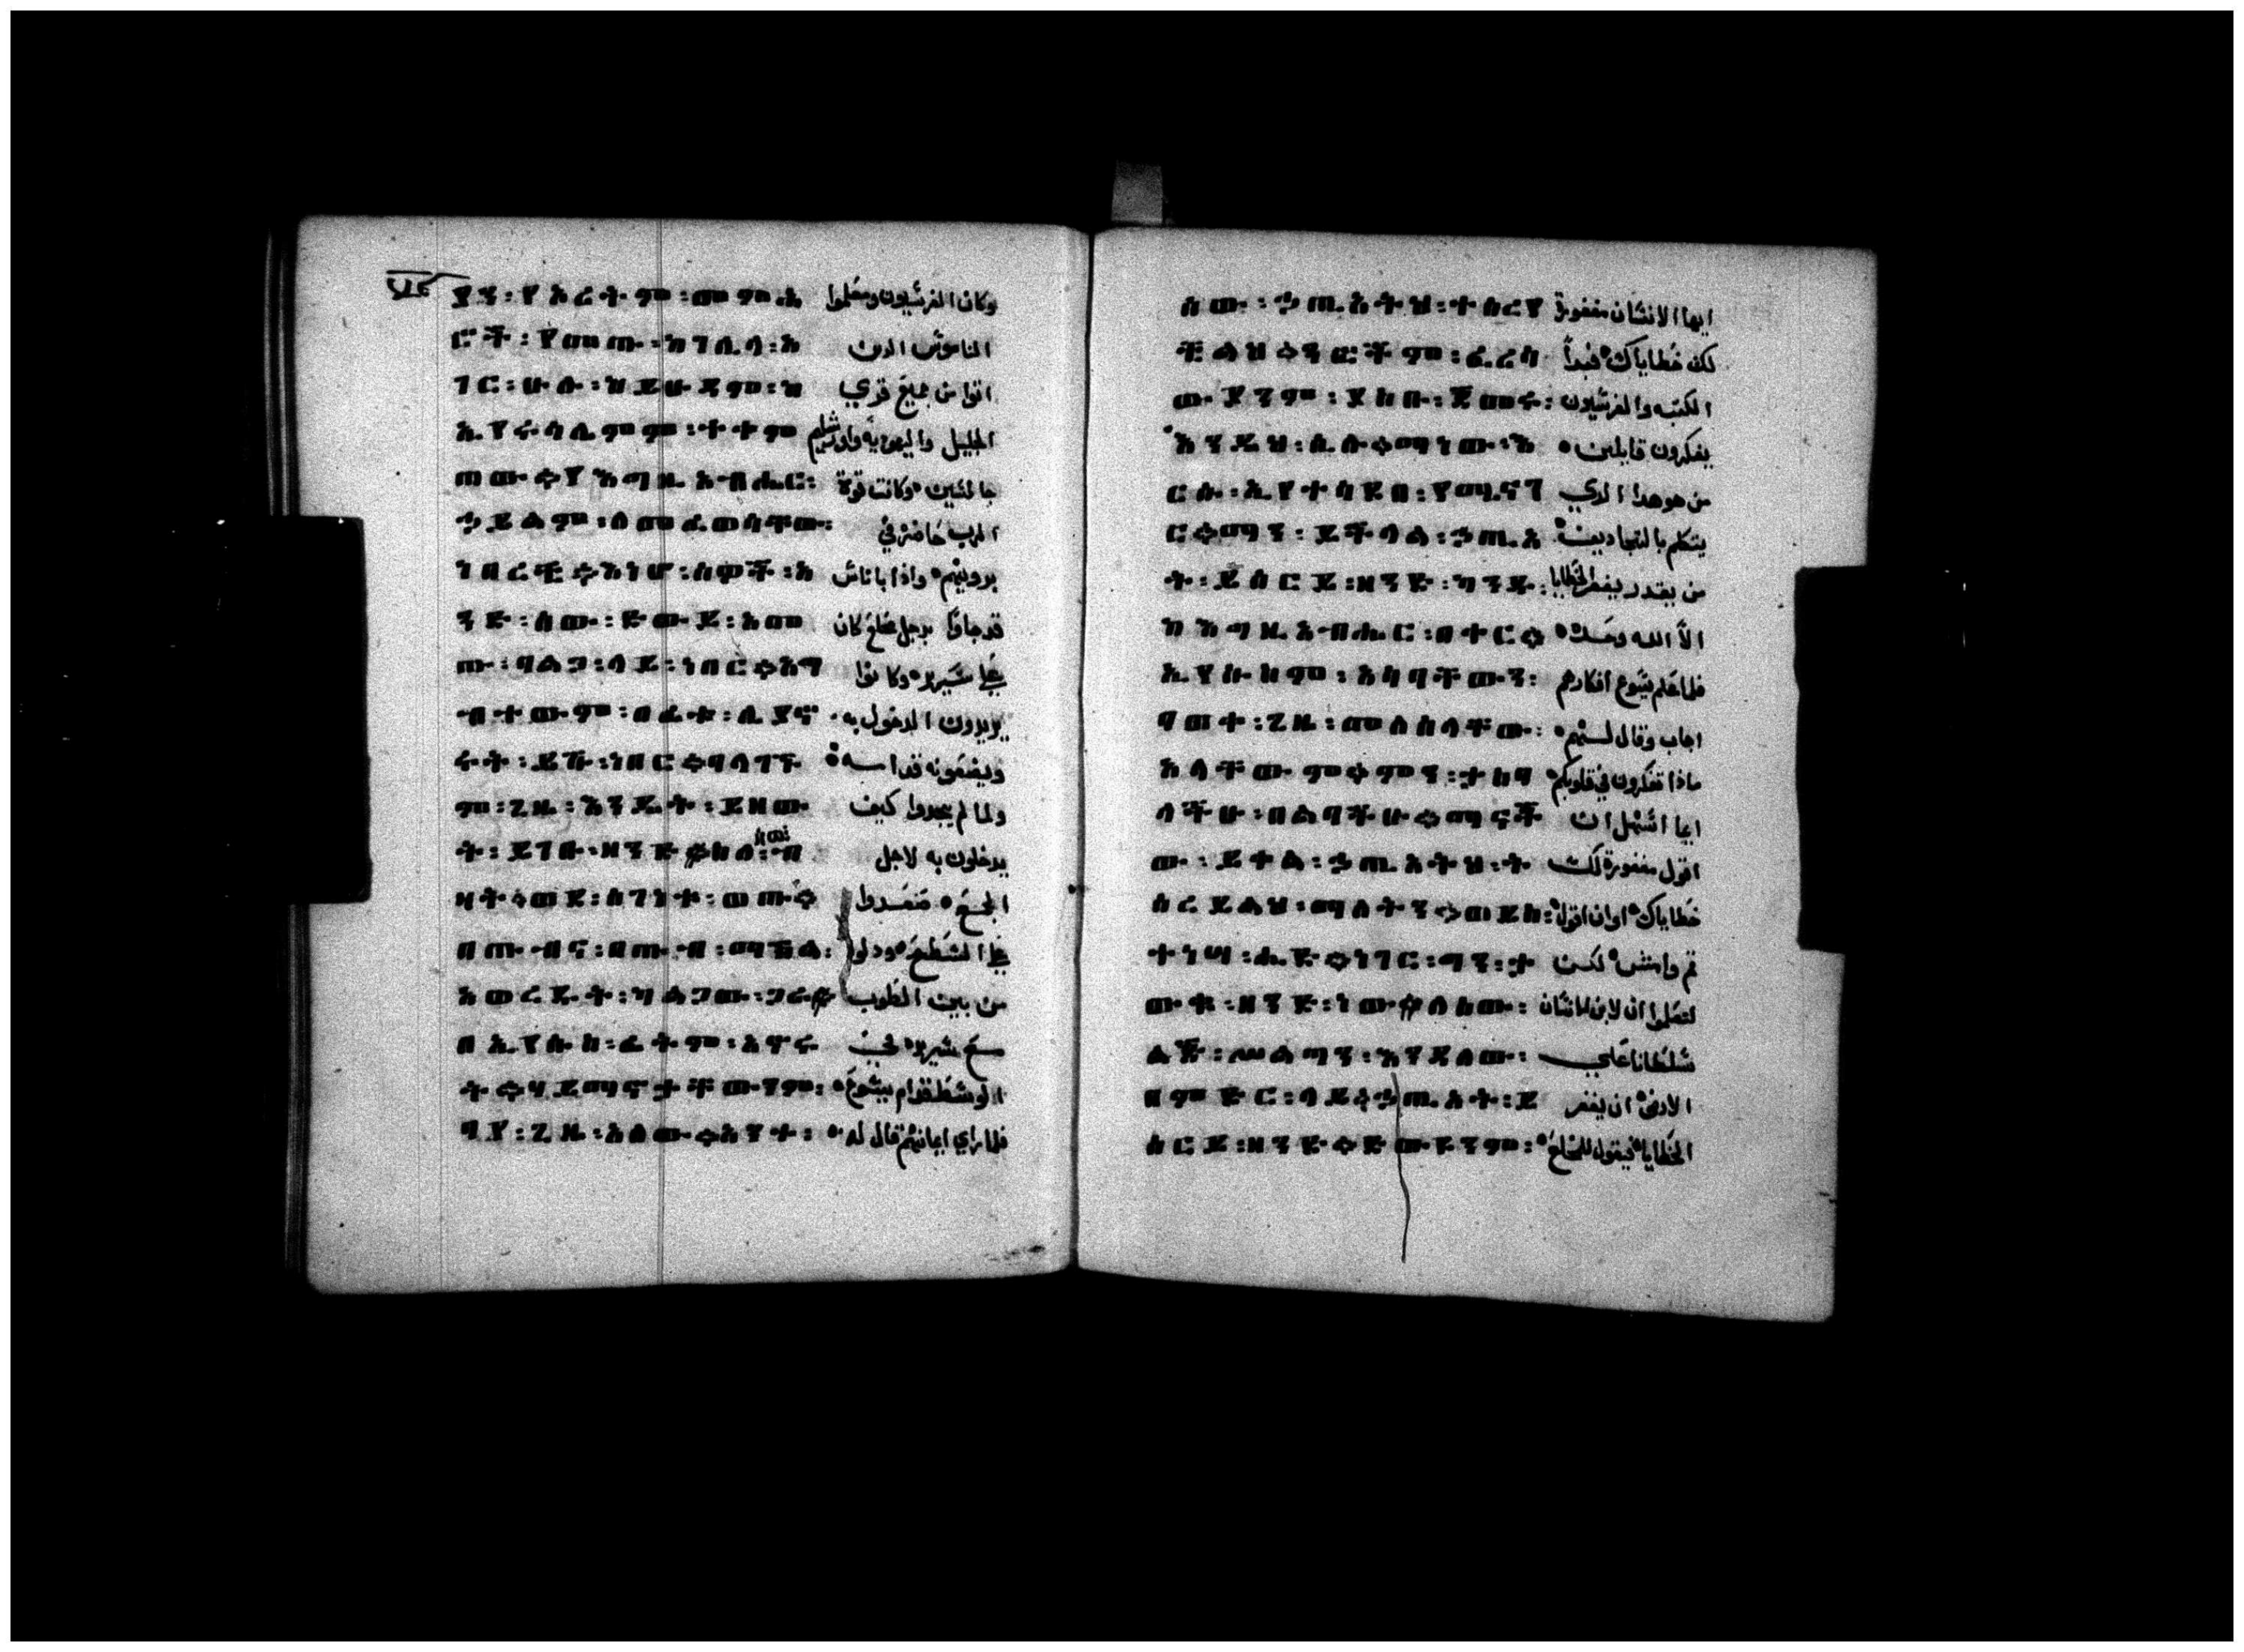 ያን፡ የኦሪትም፡ መምህ وكان الفريسيون ومعلموا
ሮች፡ የመጡ፡ ከገሊላ፡ አ الناموس الدين
ገር፡ ሁሉ፡ ከይሁዳም፡ ከ اتوا من جميع قري
ኢየሩሳሌምም፡ ተቀም الجليل واليهوديه واورشليم
ጠው።የእግዚአብሔር፡ جالسين وكانت قوة
ኃይልም፡ ለመፈወሳቸው፡ الرب حاضرة في
ነበረች።እነሆ፡ ሰዎች፡ አ واذا باناس
ንድ፡ ሰው፡ ድውይ፡ አመ قد جاوا برجل مخلع كان
ጡ፡ ባልጋ፡ ላይ፡ ነበር።አግ علي سرير وكانوا
ብተውም፡ በፊቱ፡ ሊያኖ يريدون الدخول به
ሩት፡ ይሹ፡ ነበር።ባላገኙ ويضعونه قدامه
ም፡ ጊዜ፡ እንዴት፡ ይዘው ولما لم يجدوا كيف
ት፡ ይገቡ፡ ዘንድ።ስለ፡ ሕዝብ يدخلون به لاجل
ዛት።ወደ፡ ሰገነት፡ ወጡ። الجمع فصعدوا
በጡብና፡ በጡብ፡ ማኸል፡ علي السطح ودلوا
አወረዱት፡ ካልጋው፡ ጋራ። من بين الطوب
በኢየሱስ፡ ፊትም፡ አኖሩ مع سريره في
ት።ሃይማኖታቸውንም፡ الوسط قدام يسوع
ባየ፡ ጊዜ፡ አለው።አንተ፡ فلما راي ايمانهم قال له
ሰው፡ ኃጢአትህ፡ ተሰረየ ايها الانسان مغفورة
ችልህ።ጻፎችም፡ ፈሪሳ لك خطاياك فبدا
ውያንም፡ ያስቡ፡ ጀመሩ፡ الكتبه والفريسيون
እንዲህ፡ ሲሉ።ማነው፡ እ يفكرون قايلين
ርሱ፡ ኢየተሳደበ፡ የሚናገ من هو هدا الدي
ር።ማን፡ ይችላል፡ ኃጢአ يتكلم بالتجاديف
ት፡ ይሰርይ፡ ዘንድ፡ ካንዱ፡ من يقدر يغفر الخطايا
ከእግዚአብሔር፡ በቀር። الا الله وحده
ኢየሱስም፡ አሳባቸውን፡ فلما علم يسوع افكارهم
ባወቀ፡ ጊዜ፡ መለሰላቸው፡ اجاب وقال لهم
አላቸውም።ምን፡ ታስባ ماذا تفكرون في قلوبكم
ላችሁ፡ በልባችሁ።ማናቸ ايما اسهل ان
ው፡ ይቀል፡ ኃጢአትህ፡ ት اقول مغفورة لك
ሰረይልህ፡ ማለትን።ወይስ፡ خطاياك او ان اقول
ተነሣ፡ ሒድ።ነገር፡ ግን፡ ታ قم وامش لكن
ውቁ፡ ዘንድ፡ ነው።ለሰው፡ لتعلموا ان لابن الانسان
ልጅ፡ ሥልጣን፡ እንዳለው፡ سلطانا علي
በምድር፡ ላይ።ኃጢአት፡ ይ الارض ان يغفر
ሰርይ፡ ዘንድ።ድውዩንም፡ الخطايا فيقول للمخلع